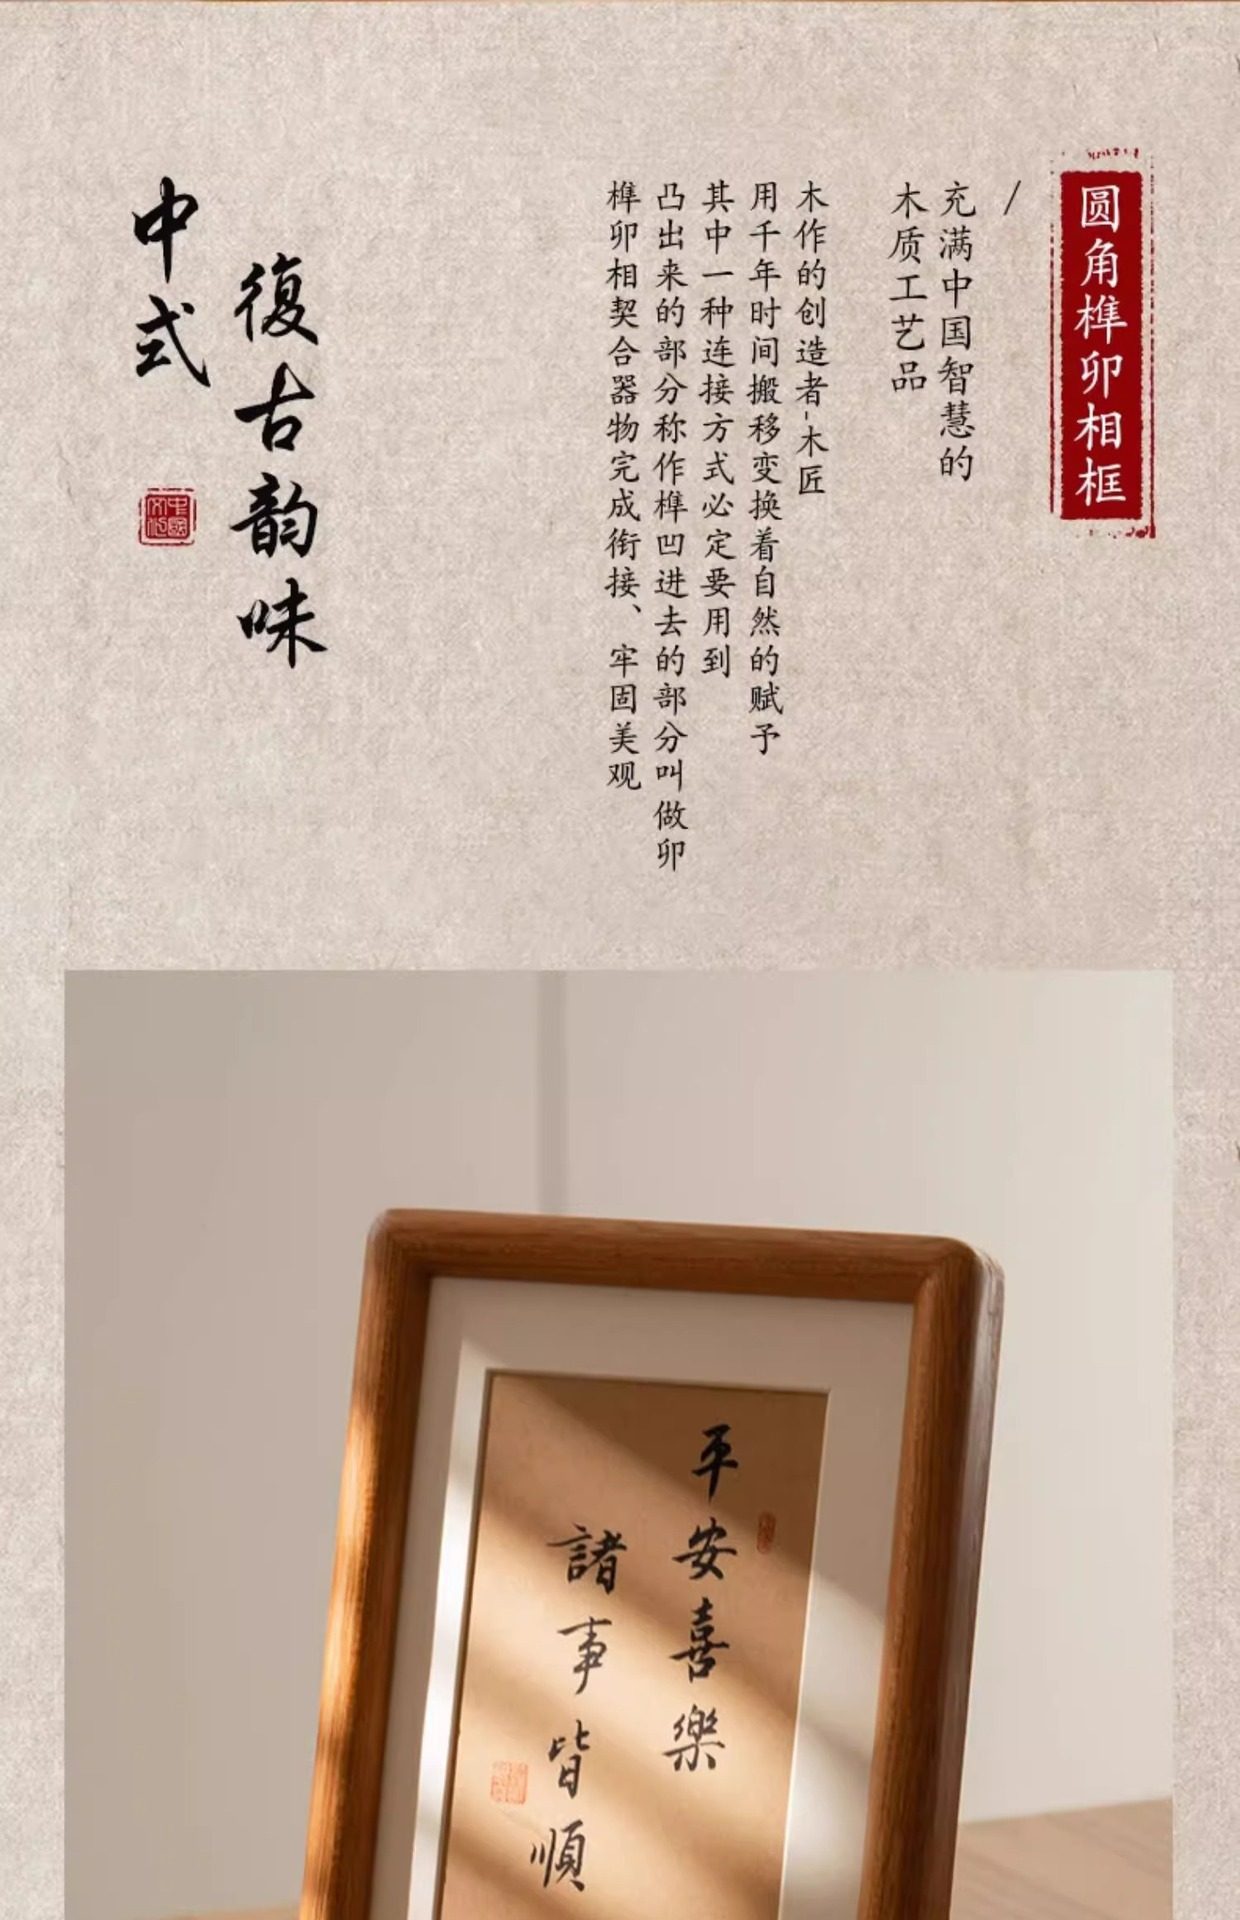 圆角榫卯相框
/
充满中国智慧的
木质工艺品
木作的创造者-木匠
用千年时间搬移变换着自然的赋予
其中一种连接方式必定要用到
凸出来的部分称作榫凹进去的部分叫做卯
榫卯相契合器物完成衔接、牢固美观
復古韵味
中式
中國文化
平安喜樂
諸事皆順